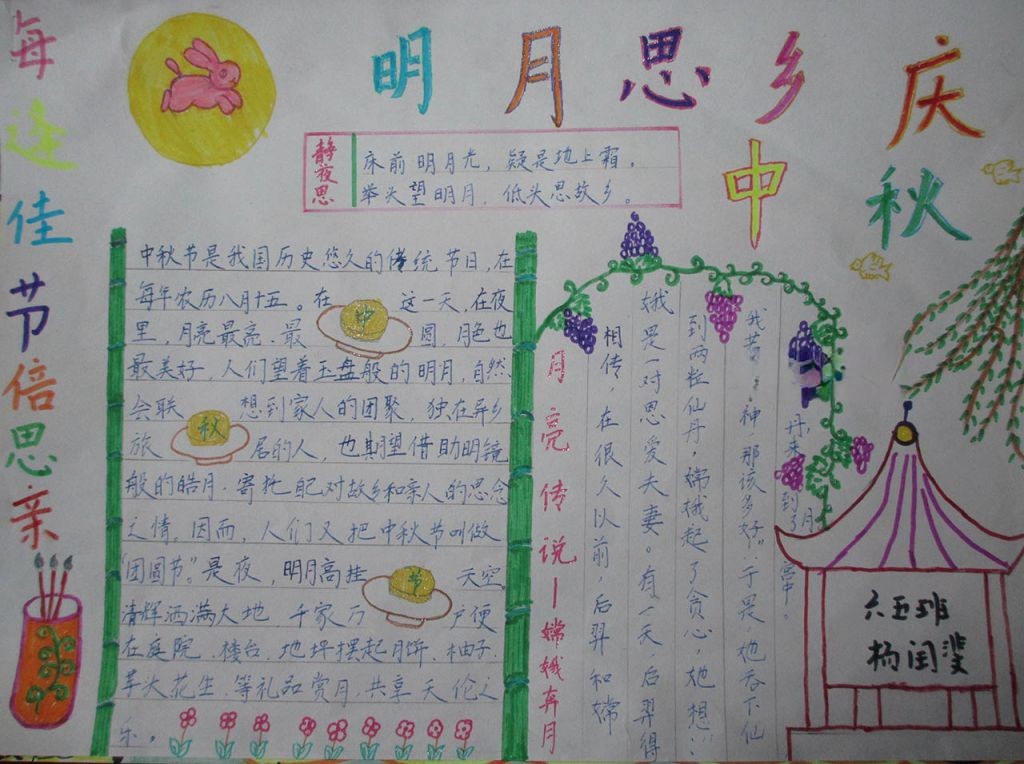 每逢佳节倍思亲
明月思乡
庆
中
秋
静夜思
床前明月光，疑是地上霜。
举头望明月，低头思故乡。
中秋节是我国历史悠久的传统节日，在
每年农历八月十五。在中这一天，在夜
里，月亮最亮、最圆，月色也
最美好，人们望着玉盘般的明月，自然
会联想到家人的团聚，独在异乡
旅秋居的人，也期望借助明镜
般的皓月，寄托自己对故乡和亲人的思念
之情，因而，人们又把中秋节叫做
“团圆节”。是夜，明月高挂节天空
清辉洒满大地，千家万户便
在庭院、楼台、地坪摆起月饼、柚子、
芋头花生，等礼品赏月，共享天伦之
乐。
月亮传说—嫦娥奔月
相传，在很久以前，后羿和嫦
娥是一对恩爱夫妻。有一天，后羿得
到两粒仙丹，嫦娥起了贪心，她想：“
我若 神，那该多好”。于是，她吞下仙
丹来到了月宫中。
六五班
杨闰斐